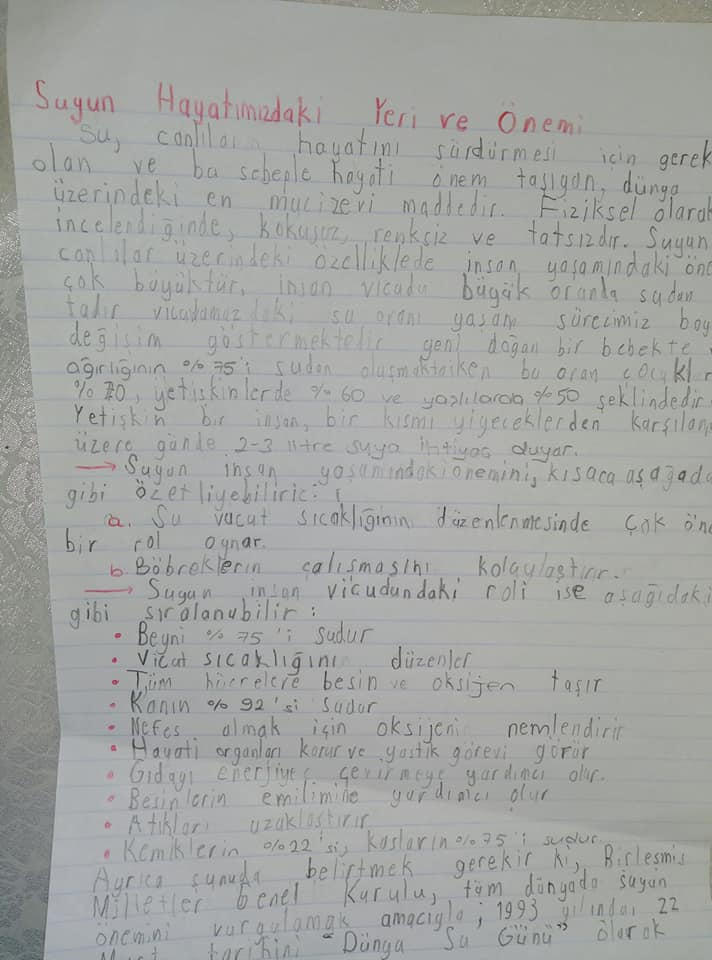 Suyun Hayatımızdaki Yeri ve Önemi
Su, canlıların hayatını sürdürmesi için gerek
olan ve bu sebeple hayati önem taşıyan, dünya
üzerindeki en mucizevi maddedir. Fiziksel olarak
incelendiğinde, kokusuz, renksiz ve tatsızdır. Suyun
canlılar üzerindeki özelliklede insan yaşamındaki öne
çok büyüktür, insan vicudu büyük oranla sudan
vicudumuzdaki su oranı yaşam sürecimiz boy
değişim göstermektedir yeni doğan bir bebekte v
ağırlığının %75'i sudan oluşmaktaiken bu oran çocuklar
%70, yetişkinlerde %60 ve yaşlılarda %50 şeklindedir.
Yetişkin bir insan, bir kısmı yiyeceklerden karşılan
üzere günde 2-3 litre suya ihtiyaç duyar.
→ Suyun insan yaşamındaki önemini, kısaca aşağada
gibi özetliyebiliriz:
a. Su vucut sıcaklığının düzenlenmesinde çok öne
bir rol oynar.
b. Böbreklerin çalışmasını kolaylaştırır.
→ Suyun insan vicudundaki roli ise aşağıdaki
gibi sıralanubilir :
• Beyni %75'i sudur
• Vicut sıcaklığını düzenler
• Tüm hücrelere besin ve oksijen taşır
• Kanın %92'si sudur
• Nefes almak için oksijeni nemlendirir
• Hayati organları korur ve yastık görevi görür
• Gıdayı enerjiye çevirmeye yardımcı olur.
• Besinlerin emilimine yardımcı olur
• Atıkları uzaklaştırır
• Kemiklerin %22'si, kasların %75'i sudur.
Ayrıca şunuda belirtmek gerekir ki, Birleşmiş
Milletler Genel Kurulu, tüm dünyada suyun
önemini vurgulamak amacıyla; 1993 yılında, 22
Mart tarihini "Dünya Su Günü" olarak